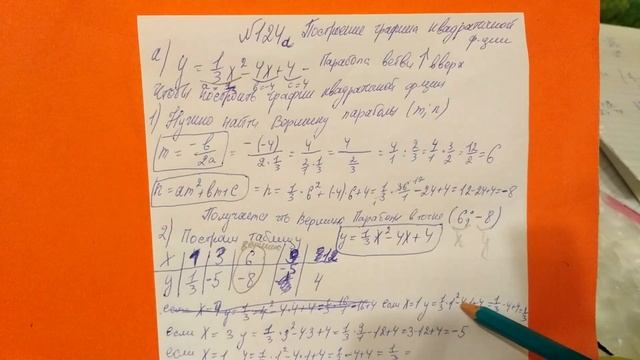 №124а Построение графика квадратичной ф-ции
а) y = 1/3 x² - 4x + 4 - Парабола ветви ↑ вверх
a = 1/3 b=-4 c=4
Чтобы построить график квадратичной ф-ции
1) Нужно найти Вершину параболы (m; n)
m = -b/2a = -(-4)/(2·1/3) = 4/(2/1·1/3) = 4/(2/3) = 4/1 : 2/3 = 4/1 · 3/2 = 12/2 = 6
n = am² + bm + c = n = 1/3 · 6² + (-4)·6 + 4 = 1/3 · 36/1 - 24 + 4 = 12 - 24 + 4 = -8
Получается что Вершина Параболы в точке (6; -8)
x y
2) Построим таблицу y = 1/3 x² - 4x + 4
вершина
x 1 3 6 9 12
y 1/3 -5 -8 -5 4
если x=1 y = 1/3 · 1² - 4·1 + 4 = 1/3 - 4 + 4 = 1/3
если x = 3 y = 1/3 · 3² - 4·3 + 4 = 1/3 · 9/1 - 12 + 4 = 3 - 12 + 4 = -5
если x = 1 y = 1/3 · 1² - 4·1 + 4 = 1/3 - 4 + 4 = 1/3 =